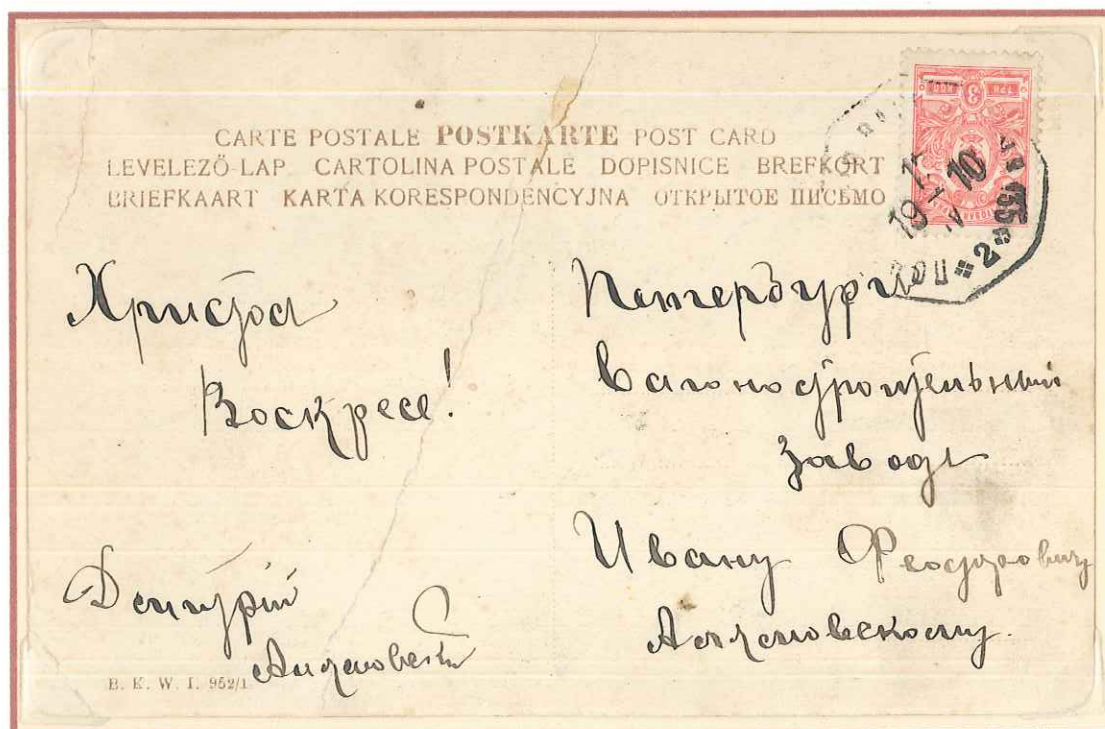 CARTE POSTALE POSTKARTE POST CARD
LEVELEZÖ-LAP CARTOLINA POSTALE DOPISNICE BREFKORT
BRIEFKAART KARTA KORESPONDENCYJNA ОТКРЫТОЕ ПИСЬМО
19 10
IV
* 2 *
Христосъ
Воскресе!
Дмитрій
B. K. W. I. 952/1
Петербургъ
Вагоностроительный
заводъ
Ивану